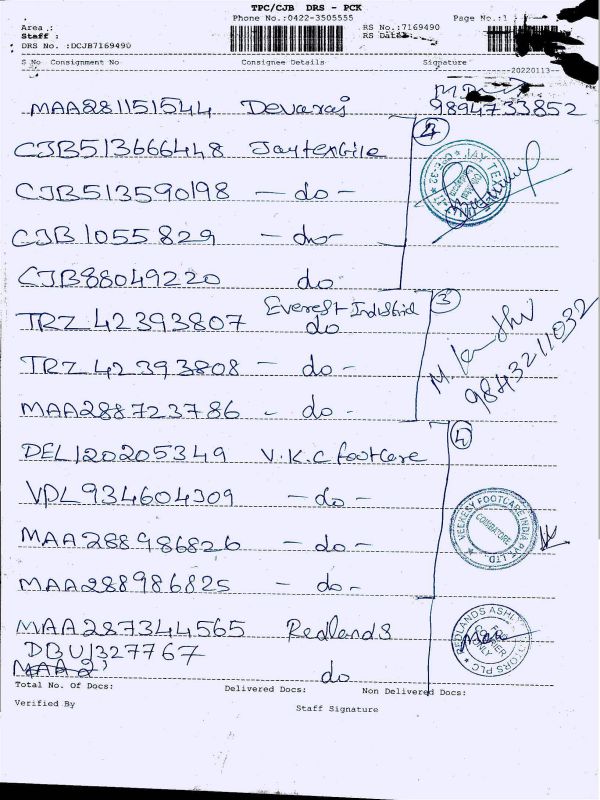 TPC/CJB DRS - PCK
Phone No.:0422-3505555
Page No.:1
Area :
Staff :
DRS No. :DCJB7169490
RS No.:7169490
RS Date:
S No Consignment No Consignee Details Signature
20220113
MAA281151544 Devaraj 9894733852
2
CJB513666448 Jaytextile
CJB513590198 - do -
CJB1055829 - do -
CJB88049220 do
3
Everest Industrial
TRZ42393807 do
TRZ42393808 - do -
MAA288723786 - do -
9843211032
4
DEL120205349 V.K.C footcare
VPL934604309 - do -
MAA288986826 - do -
VEEKESY FOOTCARE INDIA PVT. LTD.
COIMBATORE
MAA288986825 - do -
MAA287344565 Redlands
DBU1327767
MAA2 do
REDLANDS ASHL MOTORS PLC
Total No. Of Docs: Delivered Docs: Non Delivered Docs:
Verified By Staff Signature